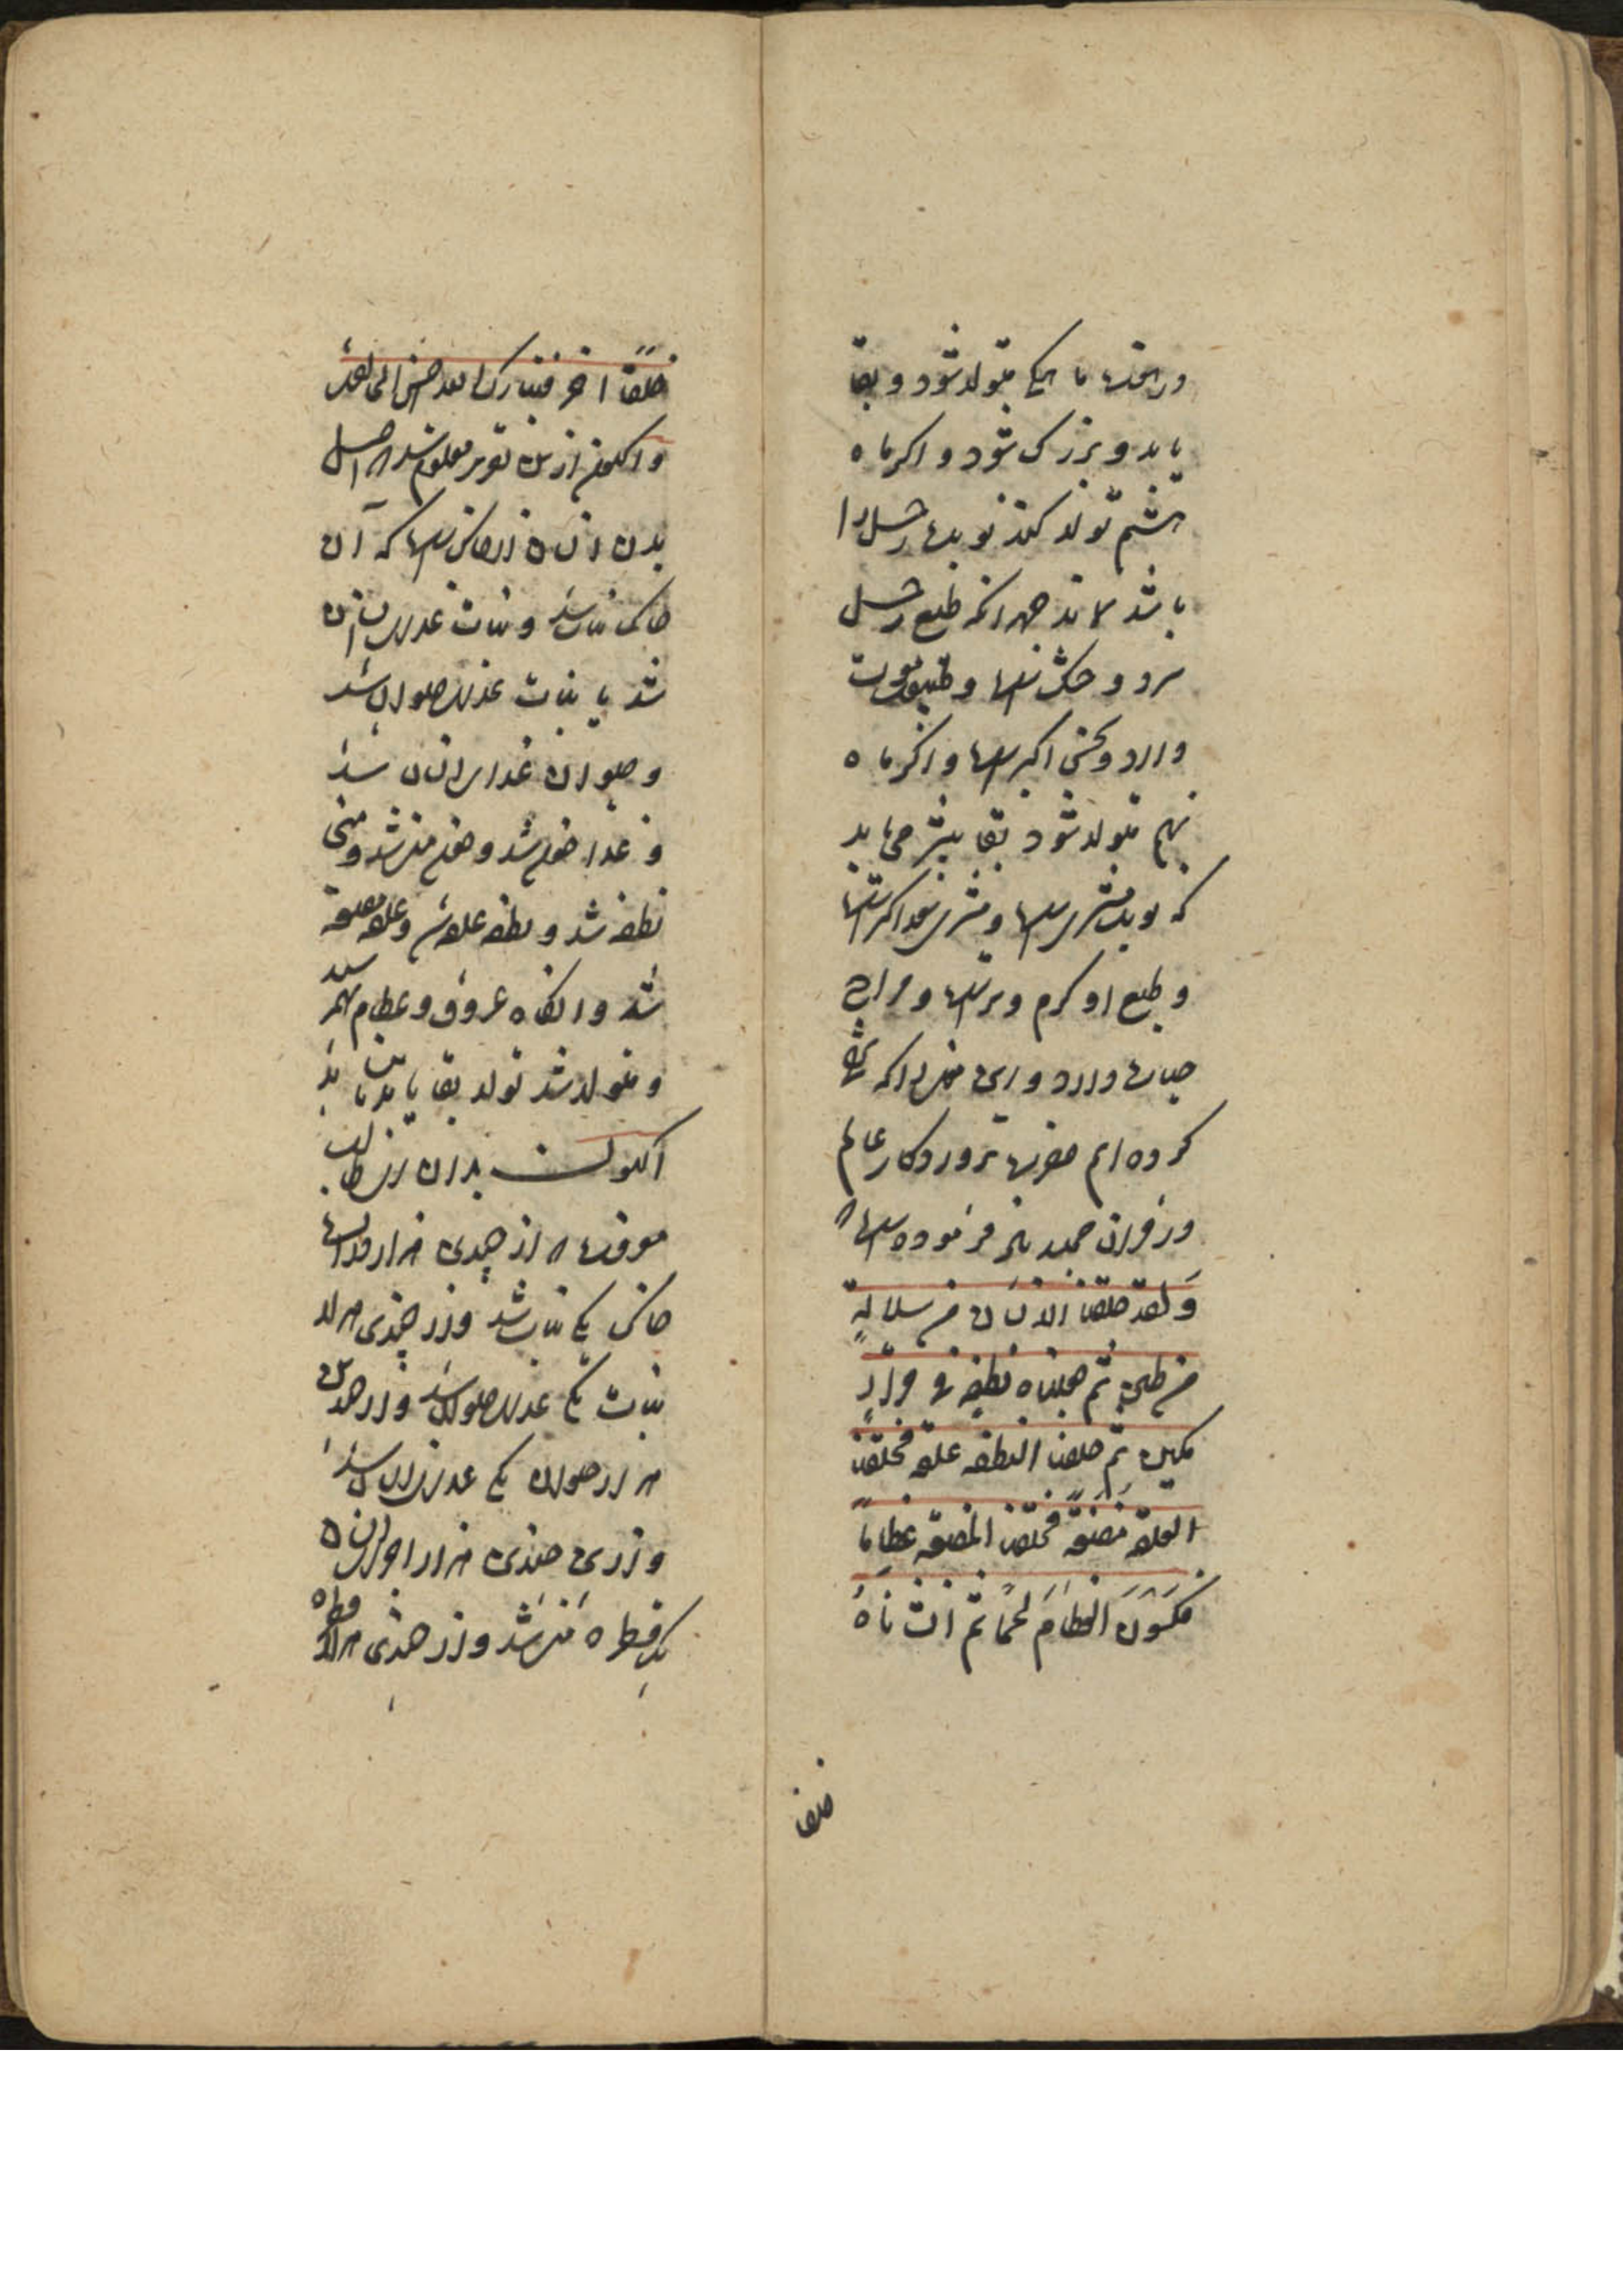 در هفت ماهگی متولد شود و بقا
یابد و بزرک شود و اکر ماه
هشتم تولد کند نوبت زحل را
باشد نماند جهه انکه طبع زحل
سرد و خشک است و طبیعت موت
دارد و نحس اکبر است و اکر ماه
نهم متولد شود بقا بیشتر می یابد
که نوبت مشتری است و مشتری سعد اکبر است
و طبع او کرم و تر است و مزاج
حیات دارد و این منزل را که
کرده ایم حضرت پروردکار عالم
در قران مجید نیز فرموده است
وَلقد خلقنا الانسان من سلالةٍ
من طین ثم جعلناه نطفة فی قرارٍ
مکین ثم خلقنا النطفه علقه فخلقنا
العلقه مضغةً فخلقنا المضغه عظاماً
فکسَونَا العظامَ لحماً ثم انشاناهُ
خلقا
خلقاً اخر فتبارک الله احسن الخالقین
و اکنون ازین تقریر معلوم شد که اصل
بدن انسان از خاک است که آن
خاک نبات شد و نبات غذای انسان
شد یا نبات غذای حیوان شد
و حیوان غذای انسان شد
و غذا خون شد و خون منی شد و منی
نطفه شد و نطفه علقه شد و علقه مضغه
شد و انکاه عروق و عظام بهم رسید
و متولد شد تولد بقا یابد یا نیابد
اکنون بدان ای طالب
معرفت که از چندین هزار
خاک یکی نبات شد و از چندین هزار
نبات یکی غذای حیوان شد و از چندین
هزار حیوان یکی غذای انسان شد
و از این چندین هزار اخوان انسان
یک قطره منی شد و از چندین هزار قطره